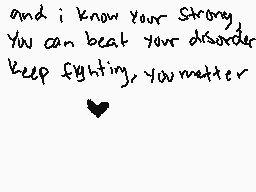 and i know your strong,
You can beat your disorder
keep fighting, you matter